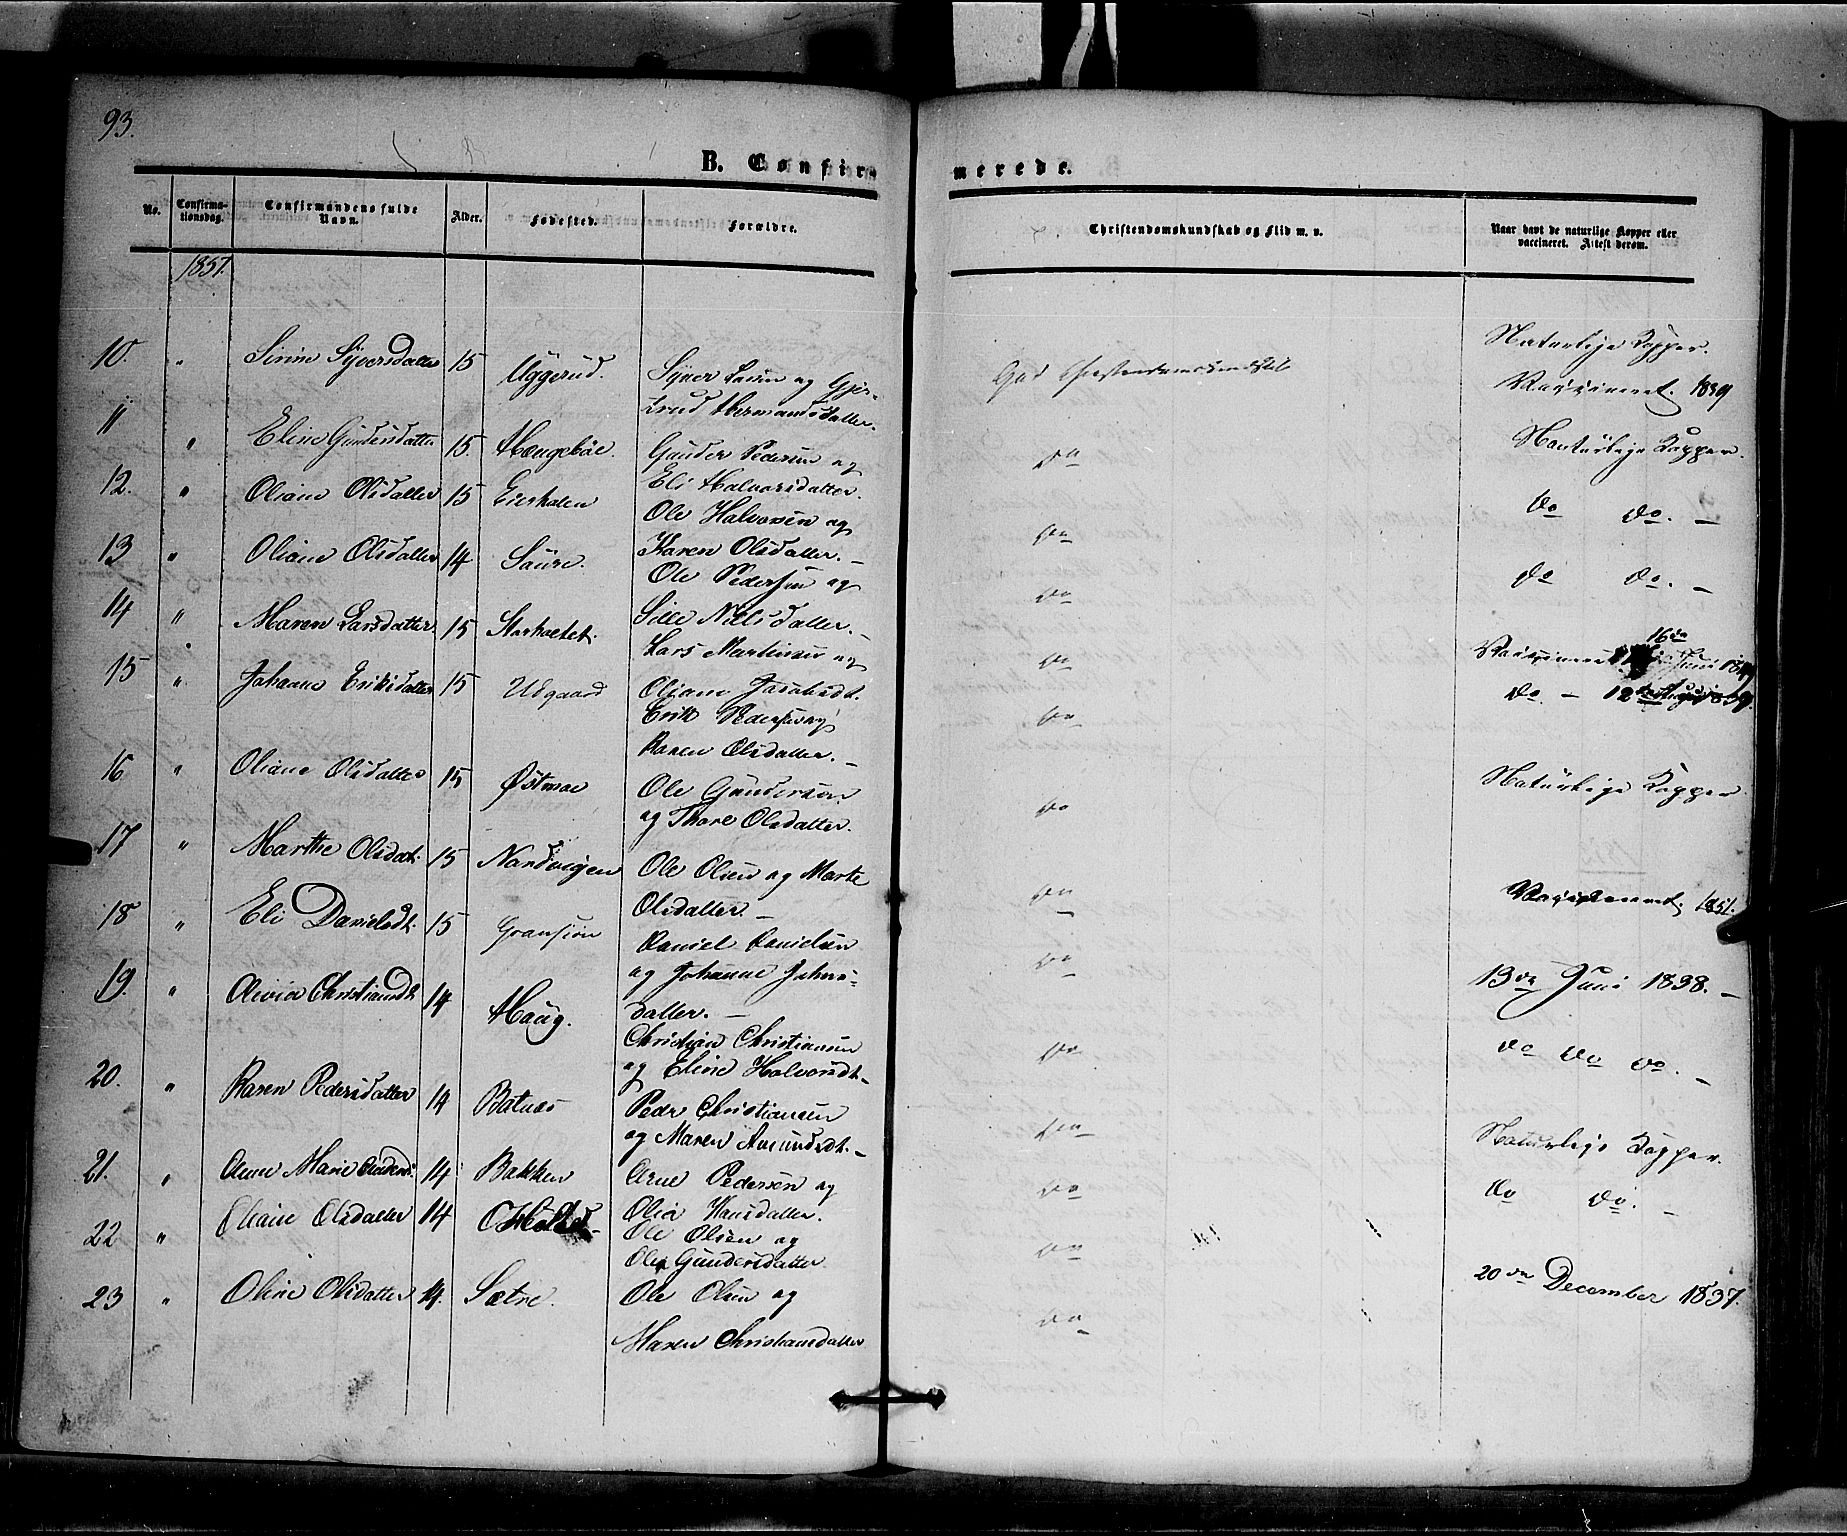 93.
B. Confir
merede.
No. Confirma-tionsdag. Confirmandens fulde Navn. Alder. Fødested. Forældre. Christendomskundskab og Flid m. v. Naar havt de naturlige Kopper eller vaccineret. Attest derom.
1851.
10. " Sirine Syversdatter 15 Uggerud. Syver Larsen og Gjer-
trud Hermandsdatter. God Christendomskundskab Naturlige Kopper.
Vaccineret. 1839
11 " Eline Gundersdatter 15. Hængeböe. Gunder Pedersen og
Eli Halvorsdatter. do Naturlige Kopper.
12. " Oliane Olsdatter 15 Ole Halvorsen og
Karen Olsdatter. do do do. —
13 " Oliane Olsdatter 14 Saure. Ole Pedersen og
Sille Nielsdatter. do do do. —
14 " Maren Larsdatter 15 Lars Martinsen og
Oliane Jacobsdt. do Vaccineret 16de Juni
15 " Johane Eriksdatter 15 Udgaard Erik Pedersen og
Karen Olsdatter. do do. — 12te 1839.
16 " Oliane Olsdatter 15 Østmoe Ole Gundersen
og Thore Olsdatter. do Naturlige Kopper
17 " Marthe Olsdat. 15 Nordvigen Ole Olsen og Marte
Olsdatter. — do Vaccineret. 1851.
18 " Eli Danielsdt. 15 Gransjön Daniel Danielsen
og Johanne Johns-
datter. — do 13de Juni 1838. —
19. " Olivia Christiansdt. 14 Haug. Christian Christiansen
og Eline Halvorsdt. do do do do. —
20. " Karen Pedersdatter 14 Batnes Peder Christiansen
og Maren Amundsdt. — do Naturlige Kopper.
21. " Anne Marie 14 Bakken Arne Pedersen og
Olia Hansdatter. do do do. —
22 " Oliane Olsdatter 14 Ole Olsen og
Olia Gundersdatter do
23 " Oline Olsdatter 14. Sætre. Ole Olsen og
Maren Christiansdatter do 20de December 1837.